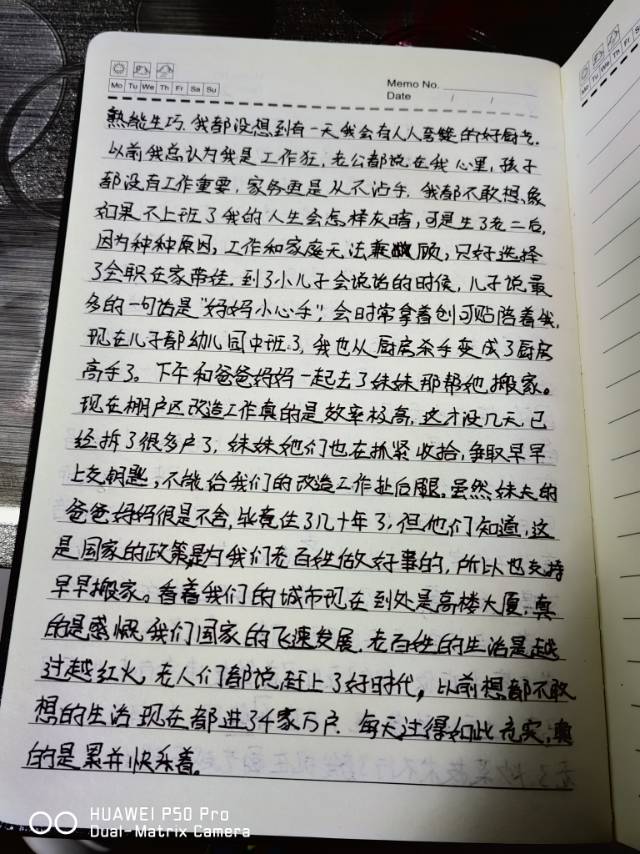 Memo No.
Mo Tu We Th Fr Sa Su
Date / /
熟能生巧,我都没想到有一天我会有人人夸赞的好厨艺.
以前我总认为我是工作狂,老公都说在我心里,孩子
都没有工作重要,家务更是从不沾手,我都不敢想象
如果不上班了我的人生会怎样灰暗,可是生了老二后,
因为种种原因,工作和家庭无法兼顾,只好选择
了全职在家带娃.到了小儿子会说话的时候,儿子说最
多的一句话是"妈妈小心手",会时常拿着创可贴陪着我,
现在儿子都幼儿园中班了,我也从厨房杀手变成了厨房
高手了。下午和爸爸妈妈一起去了妹妹那帮她搬家。
现在棚户区改造工作真的是效率极高,这才没几天,已
经拆了很多户了,妹妹她们也在抓紧收拾,争取早早
上交钥匙,不能给我们的改造工作扯后腿。虽然妹夫的
爸爸妈妈很是不舍,毕竟住了几十年了,但他们知道,这
是国家的政策,是为我们老百姓做好事的,所以也支持
早早搬家。看着我们的城市现在到处是高楼大厦,真
的是感慨我们国家的飞速发展,老百姓的生活是越
过越红火,老人们都说赶上了好时代,以前想都不敢
想的生活现在都进了千家万户.每天过得如此充实,真
的是累并快乐着。
HUAWEI P50 Pro
Dual-Matrix Camera